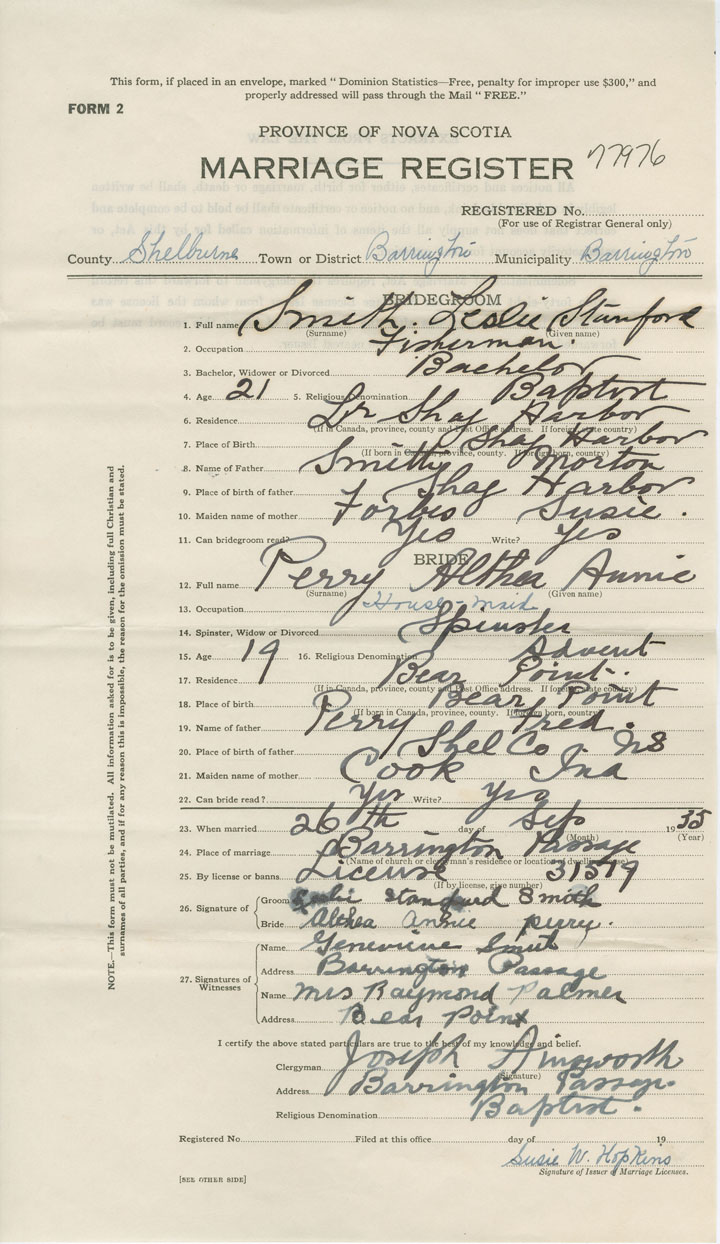 This form, if placed in an envelope, marked " Dominion Statistics—Free, penalty for improper use $300," and
properly addressed will pass through the Mail " FREE."
FORM 2
PROVINCE OF NOVA SCOTIA
MARRIAGE REGISTER 77976
REGISTERED No.
(For use of Registrar General only)
County Shelburne Town or District Barrington Municipality Barrington
BRIDEGROOM
1. Full name Smith. Leslie Stanford
(Surname) (Given name)
2. Occupation Fisherman.
3. Bachelor, Widower or Divorced Bachelor
4. Age 21 5. Religious Denomination Baptist
6. Residence Lr Shag Harbor
(If in Canada, province, county and Post Office address. If foreign, state country)
7. Place of Birth Shag Harbor
(If born in Canada, province, county. If foreign born, country)
8. Name of Father Smith Morton
9. Place of birth of father Shag Harbor
10. Maiden name of mother Forbes Susie.
11. Can bridegroom read? Yes Write? Yes
BRIDE
12. Full name Perry Althea Annie
(Surname) (Given name)
13. Occupation House maid
14. Spinster, Widow or Divorced Spinster
15. Age 19 16. Religious Denomination Advent
17. Residence Bear Point.
(If in Canada, province, county and Post Office address. If foreign, state country)
18. Place of birth Bear Point
(If born in Canada, province, county. If foreign born, country)
19. Name of father Perry Fred.
20. Place of father Shel Co NS
21. Maiden name of mother Cook Ina
22. Can bride read? Yes Write? Yes
23. When married 26th day of Sep 1935
(Month) (Year)
24. Place of marriage Barrington Passage
(Name of church or clergyman's residence or location of dwelling)
25. By license or banns License 31579
(If by license, give number)
26. Signature of Groom Leslie Stanford Smith
Bride Althea Annie perry.
27. Signatures of Witnesses
Name Genevieve Smith
Address Barrington Passage
Name Mrs Raymond Palmer
Address Bear Point
I certify the above stated particulars are true to the best of my knowledge and belief.
Clergyman Joseph Ainsworth
(Signature)
Address Barrington Passage.
Religious Denomination Baptist.
Registered No. Filed at this office day of 19
Susie W. Hopkins
Signature of Issuer of Marriage Licenses.
[SEE OTHER SIDE]
NOTE.—This form must not be mutilated. All information asked for is to be given, including full Christian and
surnames of all parties, and if for any reason this is impossible, the reason for the omission must be stated.